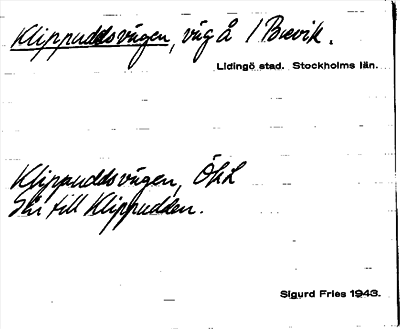 Klippuddsvägen, väg å / Brevik.
Lidingö stad. Stockholms län.
Klippuddsvägen, ÖLL
till Klippudden.
Sigurd Fries 1943.